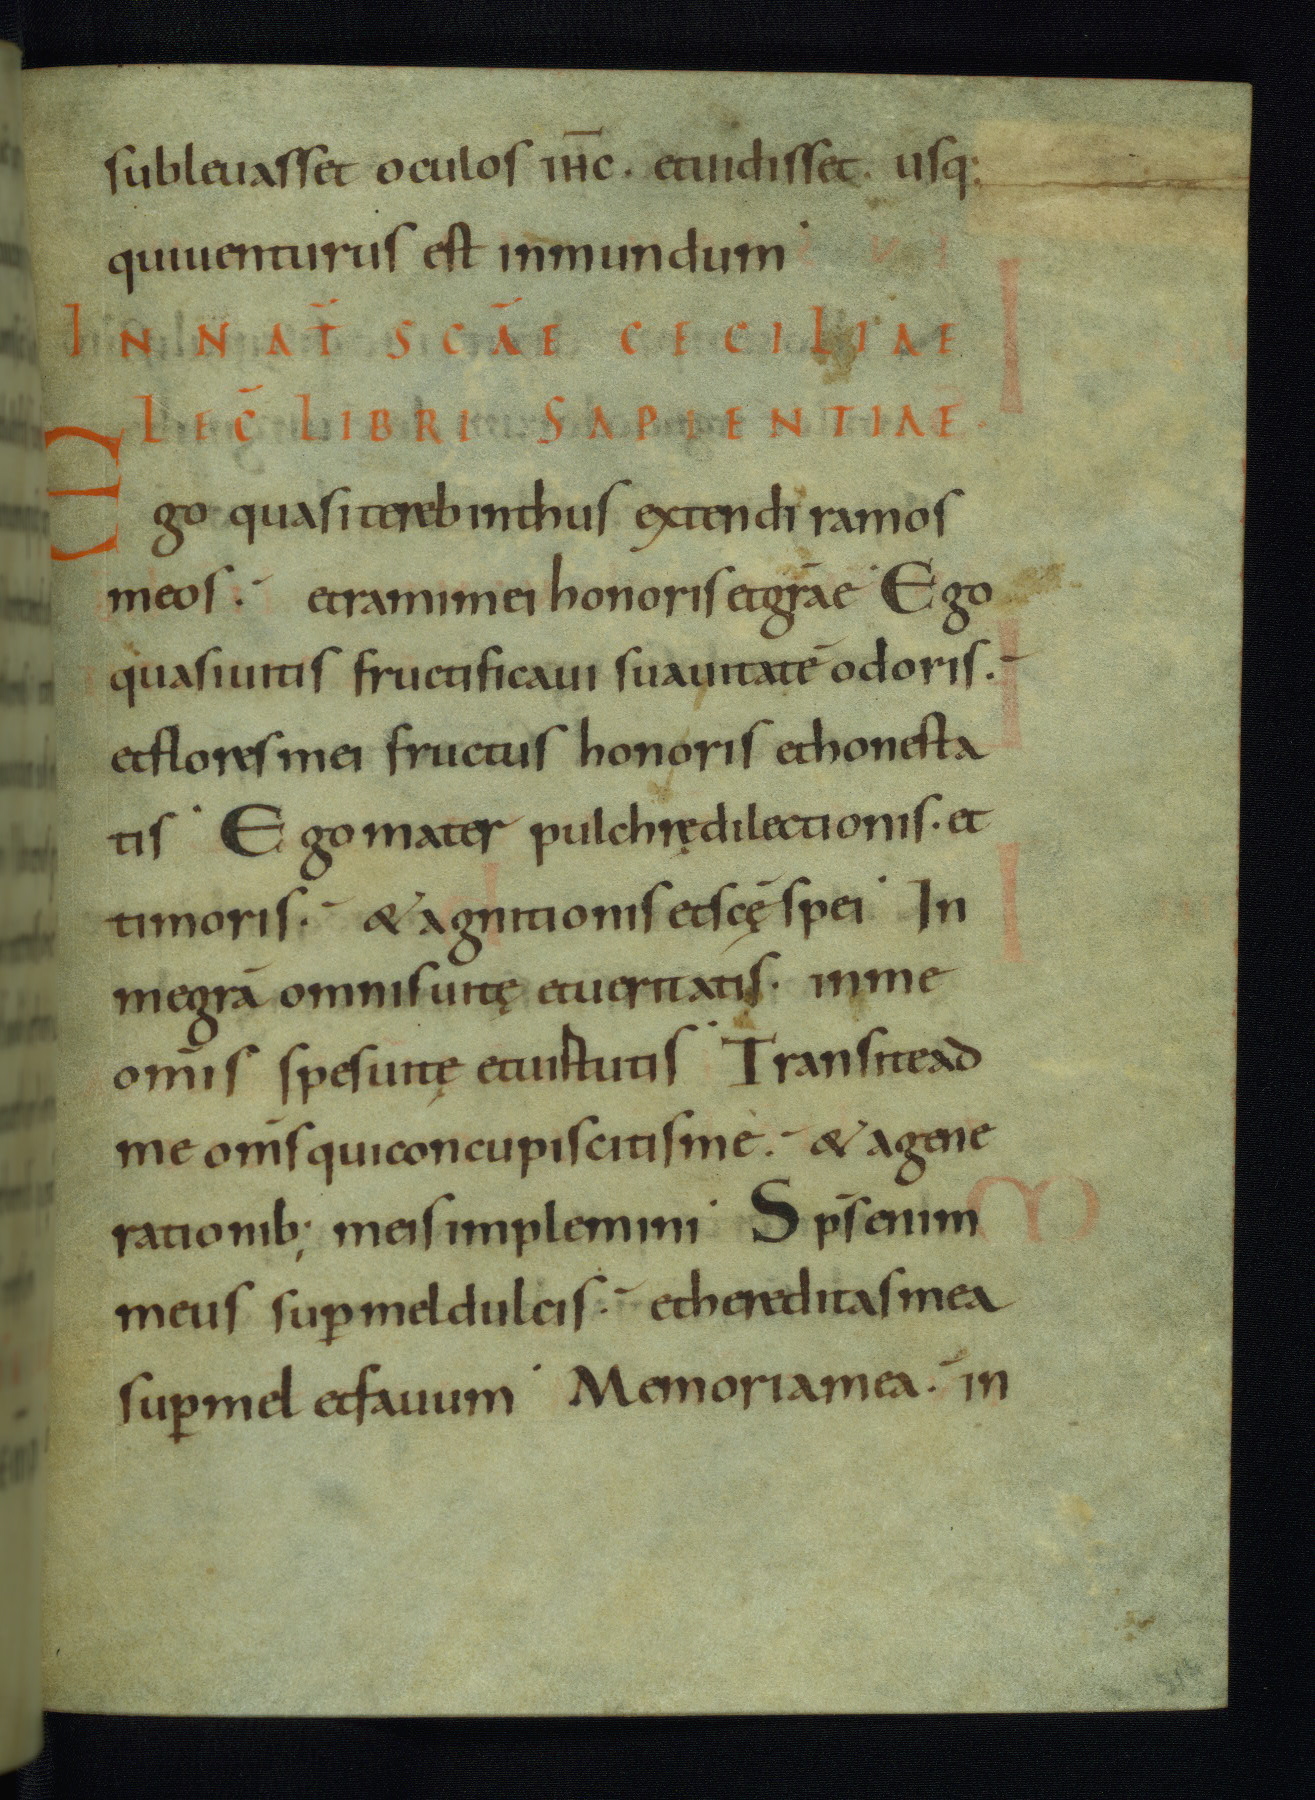 subleuasset oculos ihc̄. etuidisset. usq;
quiuenturus est inmundum·
IN NAT̄ SCĀE CECILIAE
LEC̄ LIBRI SAPIENTIAE.
Ego quasiterebinthus extendi ramos
meos.· etramimei honorisetgr̄ae· Ego
quasiuitis fructificaui suauitatē odoris.·
etfloresmei fructus honoris ethonesta
tis· Ego mater pulchrędilectionis. et
timoris.· & agnitionis etscę̄ spei· In
megr̄a omnisuitę etueritatis. inme
om̄is spesuitę etuirtutis· Transitead
me om̄s quiconcupiscitisme.· & agene
rationib; meisimplemini· Sp̄s enim
meus sup̱meldulcis.· ethereditasmea
sup̱mel etfauum· Memoriamea.· in